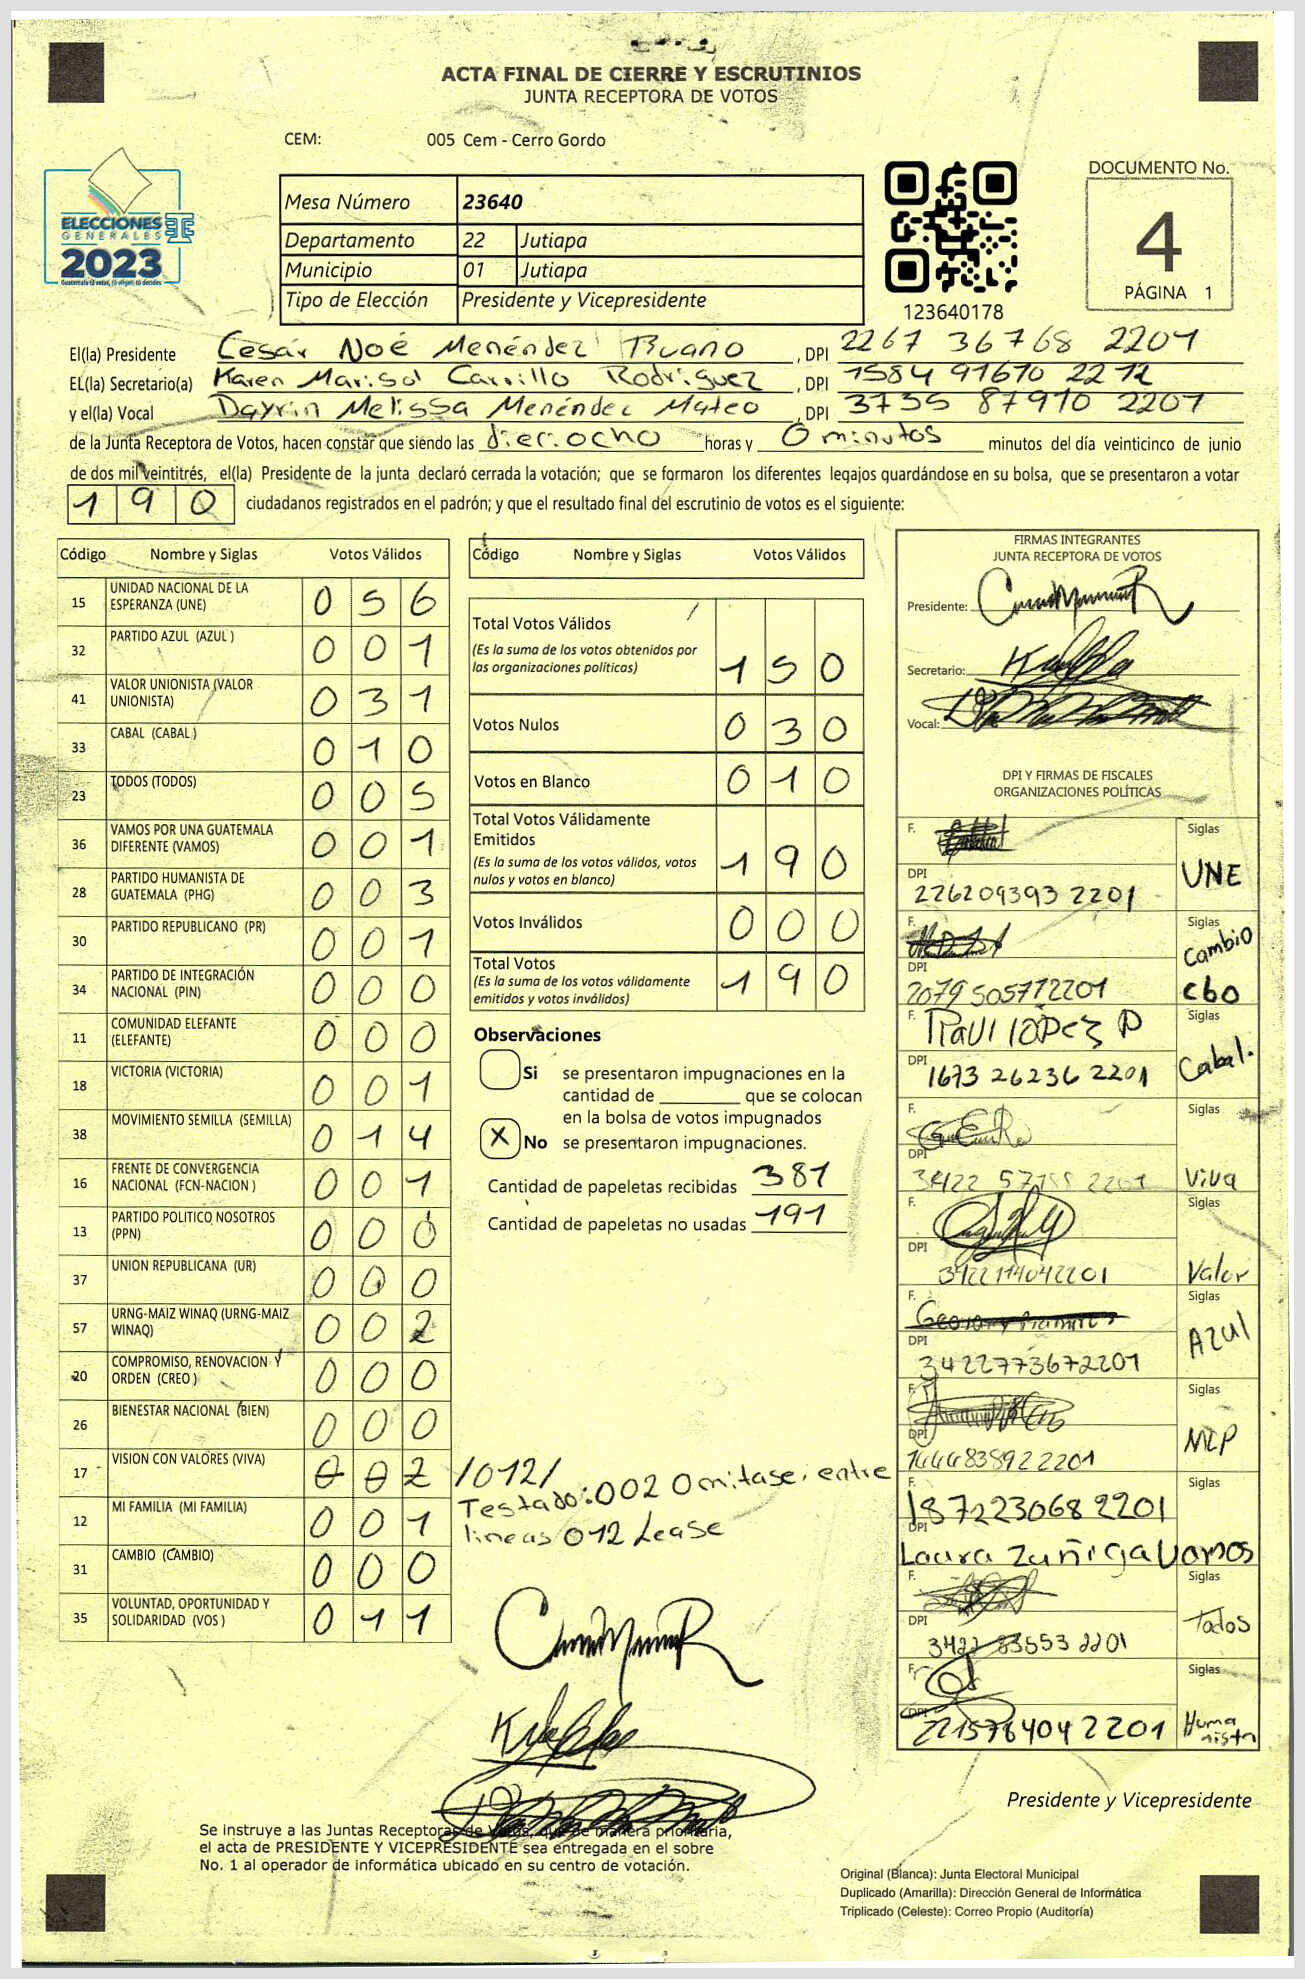 ACTA FINAL DE CIERRE Y ESCRUTINIOS
JUNTA RECEPTORA DE VOTOS
CEM: 005 Cem - Cerro Gordo
ELECCIONES
GENERALES
2023
Mesa Número 23640
Departamento 22 Jutiapa
Municipio 01 Jutiapa
Tipo de Elección Presidente y Vicepresidente
123640178
DOCUMENTO No.
4
PÁGINA 1
El(la) Presidente Cesár Noé Menéndez Ruano , DPI 2267 36768 2201
EL(la) Secretario(a) Karen Marisol Carrillo Rodríguez , DPI 1584 91610 2212
y el(la) Vocal Dayrin Melissa Menéndez Mateo , DPI 3735 87910 2201
de la Junta Receptora de Votos, hacen constar que siendo las dieciocho horas y 0 minutos minutos del día veinticinco de junio
de dos mil veintitrés, el(la) Presidente de la junta declaró cerrada la votación; que se formaron los diferentes legajos guardándose en su bolsa, que se presentaron a votar
190 ciudadanos registrados en el padrón; y que el resultado final del escrutinio de votos es el siguiente:
Código Nombre y Siglas Votos Válidos
15 UNIDAD NACIONAL DE LA ESPERANZA (UNE) 056
32 PARTIDO AZUL (AZUL ) 001
41 VALOR UNIONISTA (VALOR UNIONISTA) 031
33 CABAL (CABAL ) 010
23 TODOS (TODOS) 005
36 VAMOS POR UNA GUATEMALA DIFERENTE (VAMOS) 001
28 PARTIDO HUMANISTA DE GUATEMALA (PHG) 003
30 PARTIDO REPUBLICANO (PR) 001
34 PARTIDO DE INTEGRACIÓN NACIONAL (PIN) 000
11 COMUNIDAD ELEFANTE (ELEFANTE) 000
18 VICTORIA (VICTORIA) 001
38 MOVIMIENTO SEMILLA (SEMILLA) 014
16 FRENTE DE CONVERGENCIA NACIONAL (FCN-NACION ) 001
13 PARTIDO POLITICO NOSOTROS (PPN) 000
37 UNION REPUBLICANA (UR) 000
57 URNG-MAIZ WINAQ (URNG-MAIZ WINAQ) 002
20 COMPROMISO, RENOVACION Y ORDEN (CREO ) 000
26 BIENESTAR NACIONAL (BIEN) 000
17 VISION CON VALORES (VIVA) 002 /012/
Testado:002 Omitase. entre
lineas 012 Lease
12 MI FAMILIA (MI FAMILIA) 001
31 CAMBIO (CAMBIO) 000
35 VOLUNTAD, OPORTUNIDAD Y SOLIDARIDAD (VOS ) 011
Código Nombre y Siglas Votos Válidos
Total Votos Válidos 150
(Es la suma de los votos obtenidos por
las organizaciones políticas)
Votos Nulos 030
Votos en Blanco 010
Total Votos Válidamente
Emitidos 190
(Es la suma de los votos válidos, votos
nulos y votos en blanco)
Votos Inválidos 000
Total Votos 190
(Es la suma de los votos válidamente
emitidos y votos inválidos)
Observaciones
Si se presentaron impugnaciones en la
cantidad de ________ que se colocan
en la bolsa de votos impugnados
X No se presentaron impugnaciones.
Cantidad de papeletas recibidas 381
Cantidad de papeletas no usadas 191
FIRMAS INTEGRANTES
JUNTA RECEPTORA DE VOTOS
Presidente:
Secretario:
Vocal:
DPI Y FIRMAS DE FISCALES
ORGANIZACIONES POLÍTICAS
F. Siglas
DPI 226209393 2201 UNE
F. Siglas
DPI 2079 505772201 Cambio
F. Raul López P Siglas
DPI 1673 26236 2201 Cabal.
F. Siglas
DPI 2201 Viva
F. Siglas
DPI 3422114042201 Valor
F. Siglas
DPI 3422773672201 AZUl
F. Siglas
DPI 1444838922201 MLP
F. 187223068 2201 Siglas
DPI Laura Zuñiga Vamos
F. Siglas
DPI 3422 83553 2201 Todos
F. Siglas
DPI 221576404 2201 Humanista
Presidente y Vicepresidente
Se instruye a las Juntas Receptoras de Votos, que de manera prioritaria,
el acta de PRESIDENTE Y VICEPRESIDENTE sea entregada en el sobre
No. 1 al operador de informática ubicado en su centro de votación.
Original (Blanca): Junta Electoral Municipal
Duplicado (Amarilla): Dirección General de Informática
Triplicado (Celeste): Correo Propio (Auditoría)